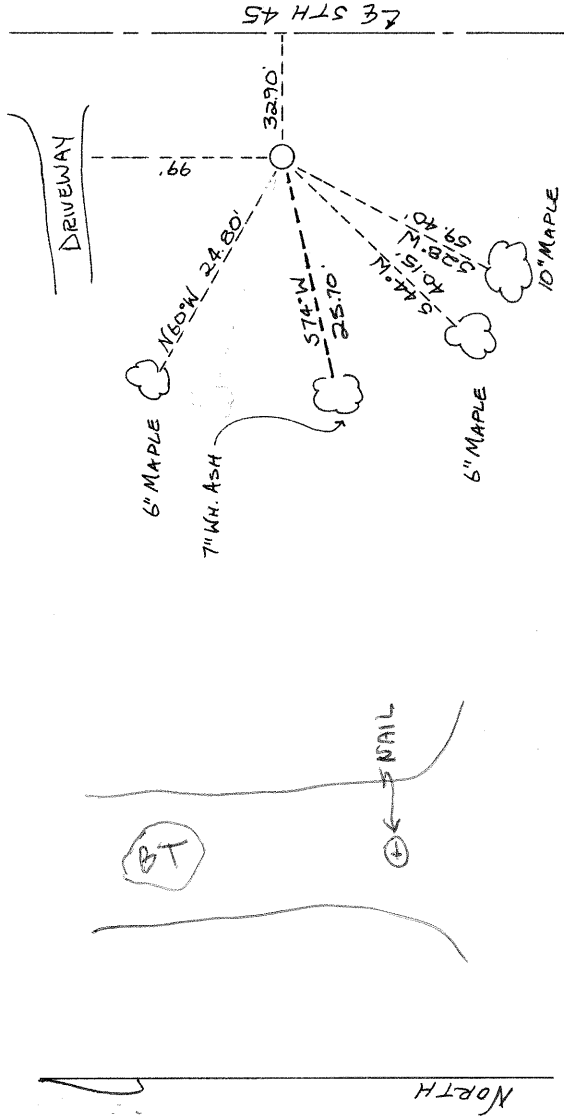 ℄ STH 45
32.90'
DRIVEWAY
66'
N60°W 24.80'
S74°W
25.70'
S44°W
40.15'
S28°W
59.40'
6" MAPLE
7" WH. ASH
6" MAPLE
10" MAPLE
BT
NAIL
NORTH